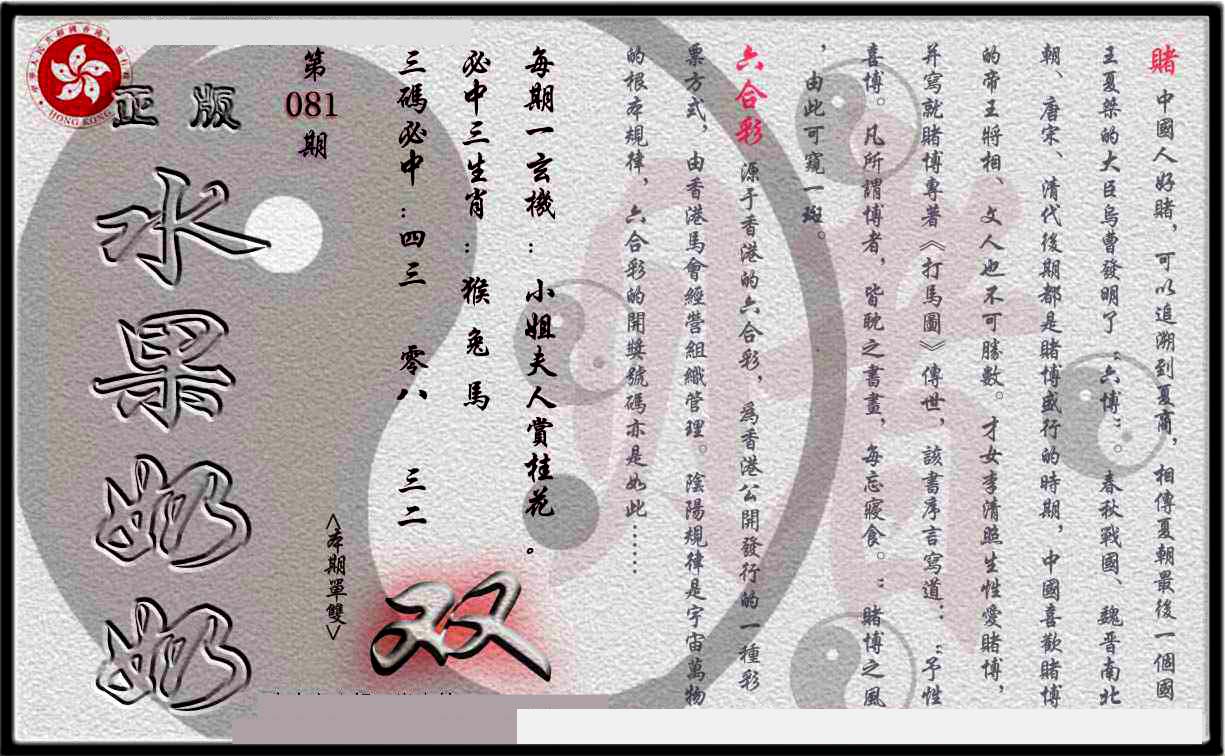 賭 中國人好賭，可以追溯到夏商，相傳夏朝最後一個國
王夏桀的大臣烏曹發明了“六博”。春秋戰國、魏晋南北
朝、唐宋、清代後期都是賭博盛行的時期，中國喜歡賭博
的帝王將相、文人也不可勝數。才女李清照生性愛賭博，
并寫就賭博專著《打馬圖》傳世，該書序言寫道：“予性
喜博。凡所謂博者，皆耽之書畫，每忘寢食。”賭博之風
，由此可窺一斑。
六合彩 源于香港的六合彩，爲香港公開發行的一種彩
票方式，由香港馬會經營組織管理。陰陽規律是宇宙萬物
的根本規律，六合彩的開獎號碼亦是如此……
每期一玄機：小姐夫人賞桂花。
必中三生肖：猴兔馬
三碼必中：四三 零八 三二
<本期單雙>
双
第081期
正版
水果奶奶
HONG KONG